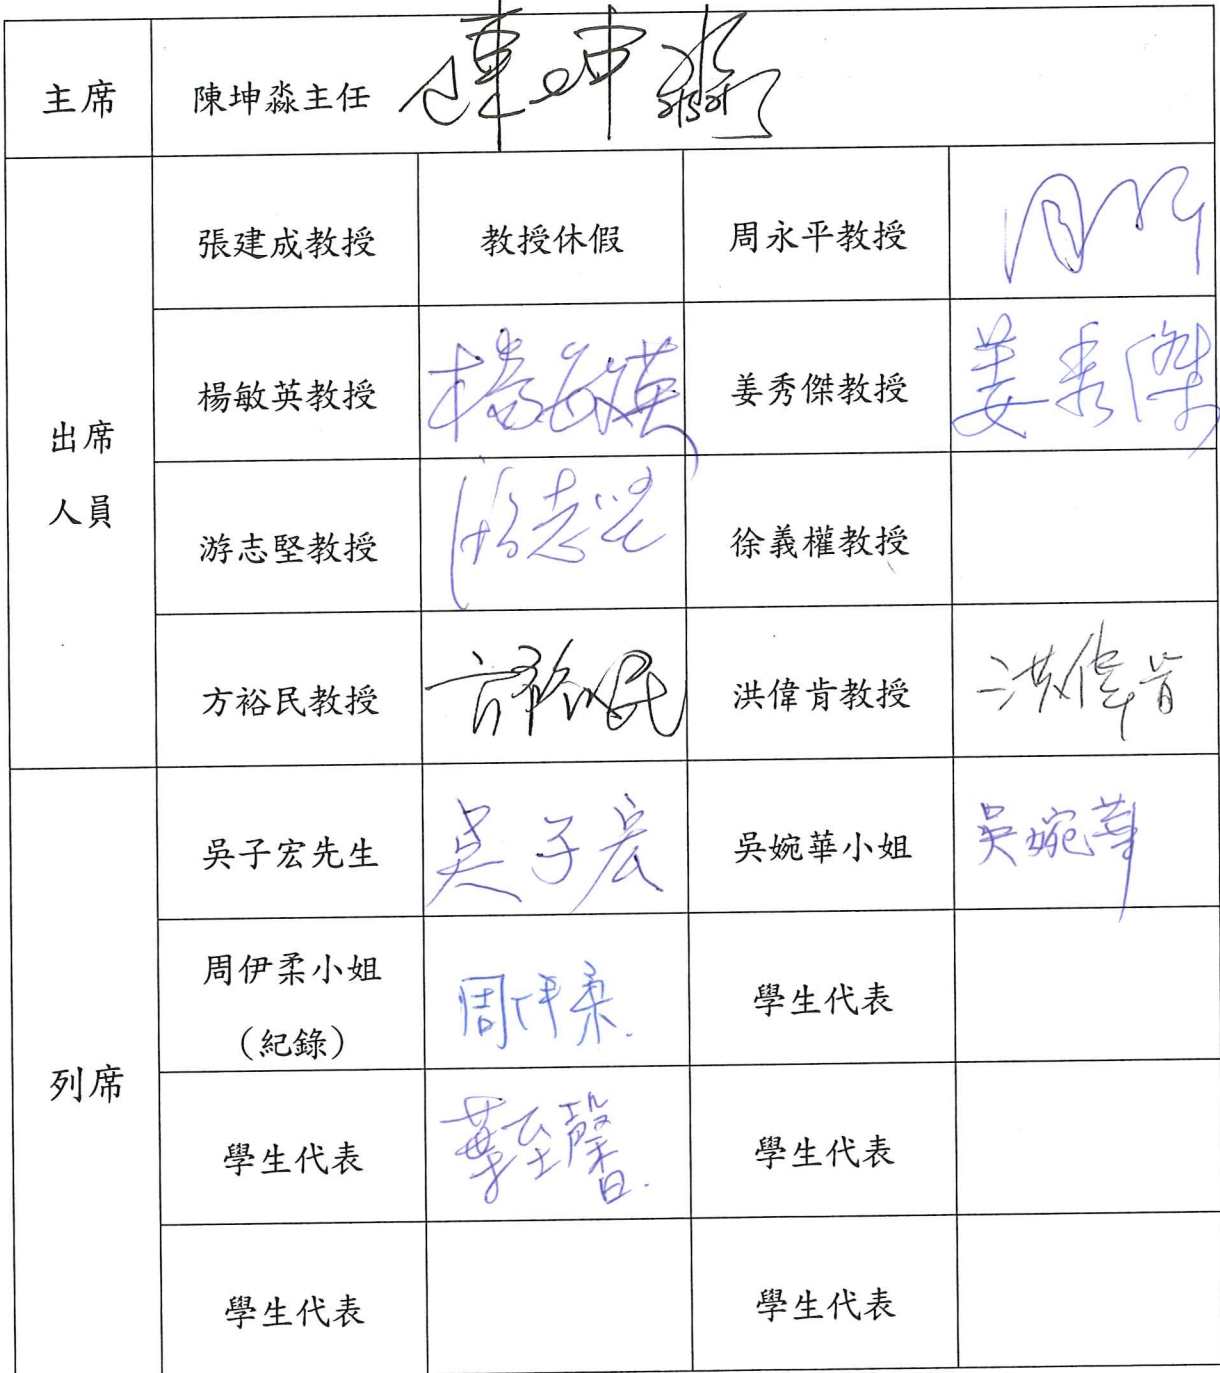 主席
陳坤淼主任 陳坤淼
出席
人員
張建成教授 教授休假 周永平教授
楊敏英教授 楊敏英 姜秀傑教授 姜秀傑
游志堅教授 游志堅 徐義權教授
方裕民教授 方裕民 洪偉肯教授 洪偉肯
列席
吳子宏先生 吳子宏 吳婉華小姐 吳婉華
周伊柔小姐
(紀錄)
周伊柔
學生代表
學生代表 葉至馨 學生代表
學生代表 學生代表